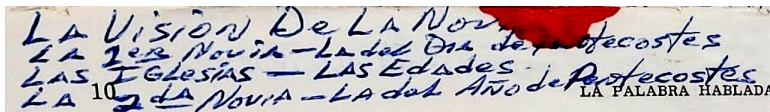 LA VISIÓN DE LA NOV
LA 1ER NOVIA – LA del DIA de Pentecostes
LAS IGLESIAS – LAS EDADES.
LA 2da NOVIA – LA del AÑO de Pentecostes
10 LA PALABRA HABLADA